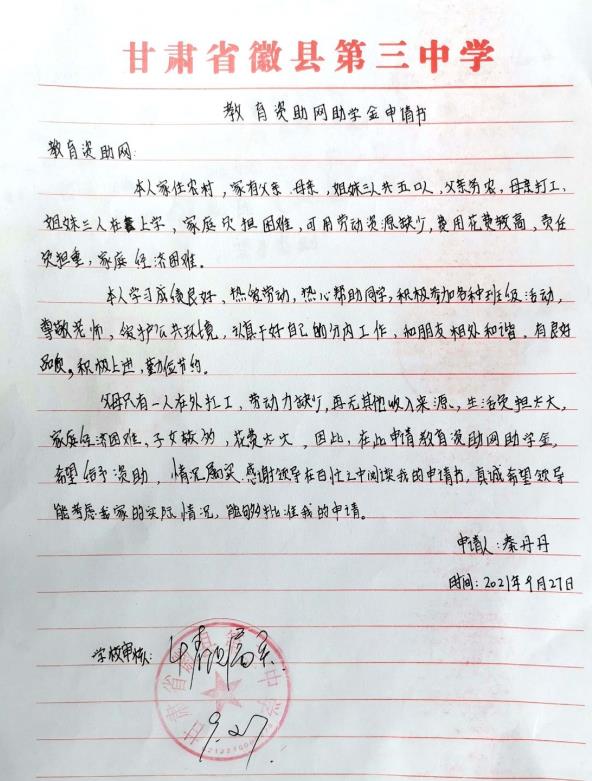 甘肃省徽县第三中学
教育资助网助学金申请书
教育资助网:
本人家住农村,家有父亲、母亲,姐妹三人共五口人,父亲务农,母亲打工,
姐妹三人在上学,家庭负担困难,可用劳动资源缺少,费用花费较高,责任
负担重,家庭经济困难。
本人学习成绩良好,热爱劳动,热心帮助同学,积极参加各种班级活动,
尊敬老师,维护公共环境,认真干好自己的分内工作,和朋友相处和谐,有良好
品质。积极上进,勤俭节约。
父母只有一人在外打工,劳动力缺少,再无其他收入来源、生活负担太大,
家庭经济困难,子女较幼,花费太大,因此,在此申请教育资助网助学金,
希望给予资助,情况属实.感谢领导在百忙之中阅读我的申请书,真诚希望领导
能考虑我家的实际情况,能够批准我的申请。
申请人:秦丹丹
时间:2021年9月27日
学校审核:
甘肃省徽县第三中学
9.27